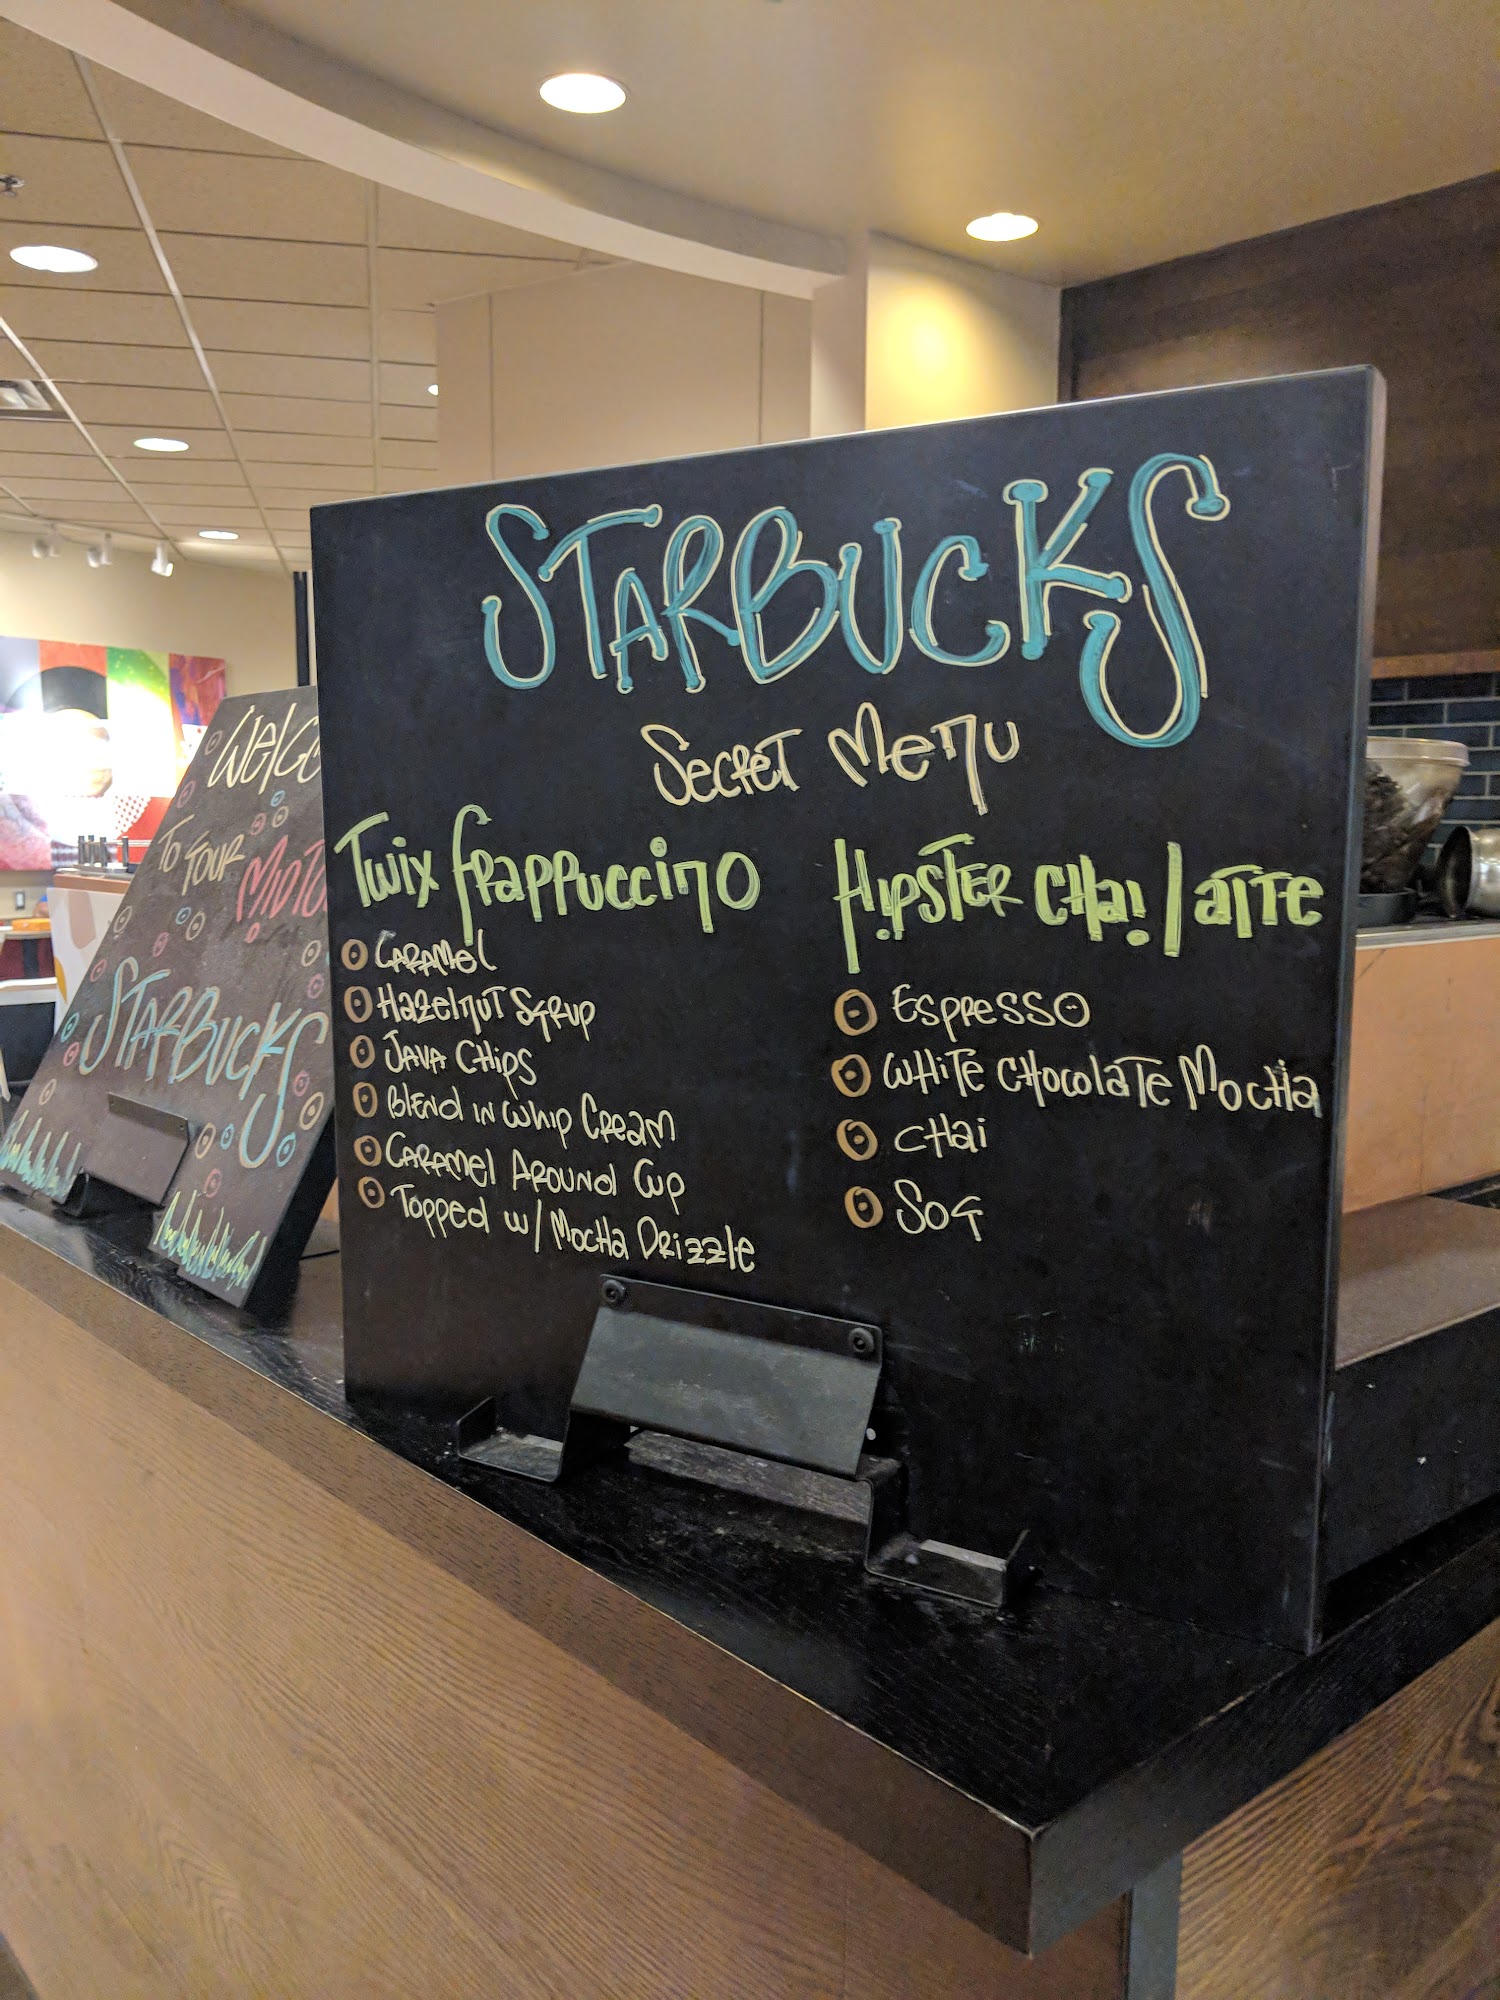 STARBUCKS
Secret Menu
Twix Frappuccino
Caramel
Hazelnut Syrup
Java Chips
Blend in Whip Cream
Caramel Around Cup
Topped w/ Mocha Drizzle
Hipster Chai Latte
Espresso
White Chocolate Mocha
Chai
Soy
Welco
To Your
STARBUCKS